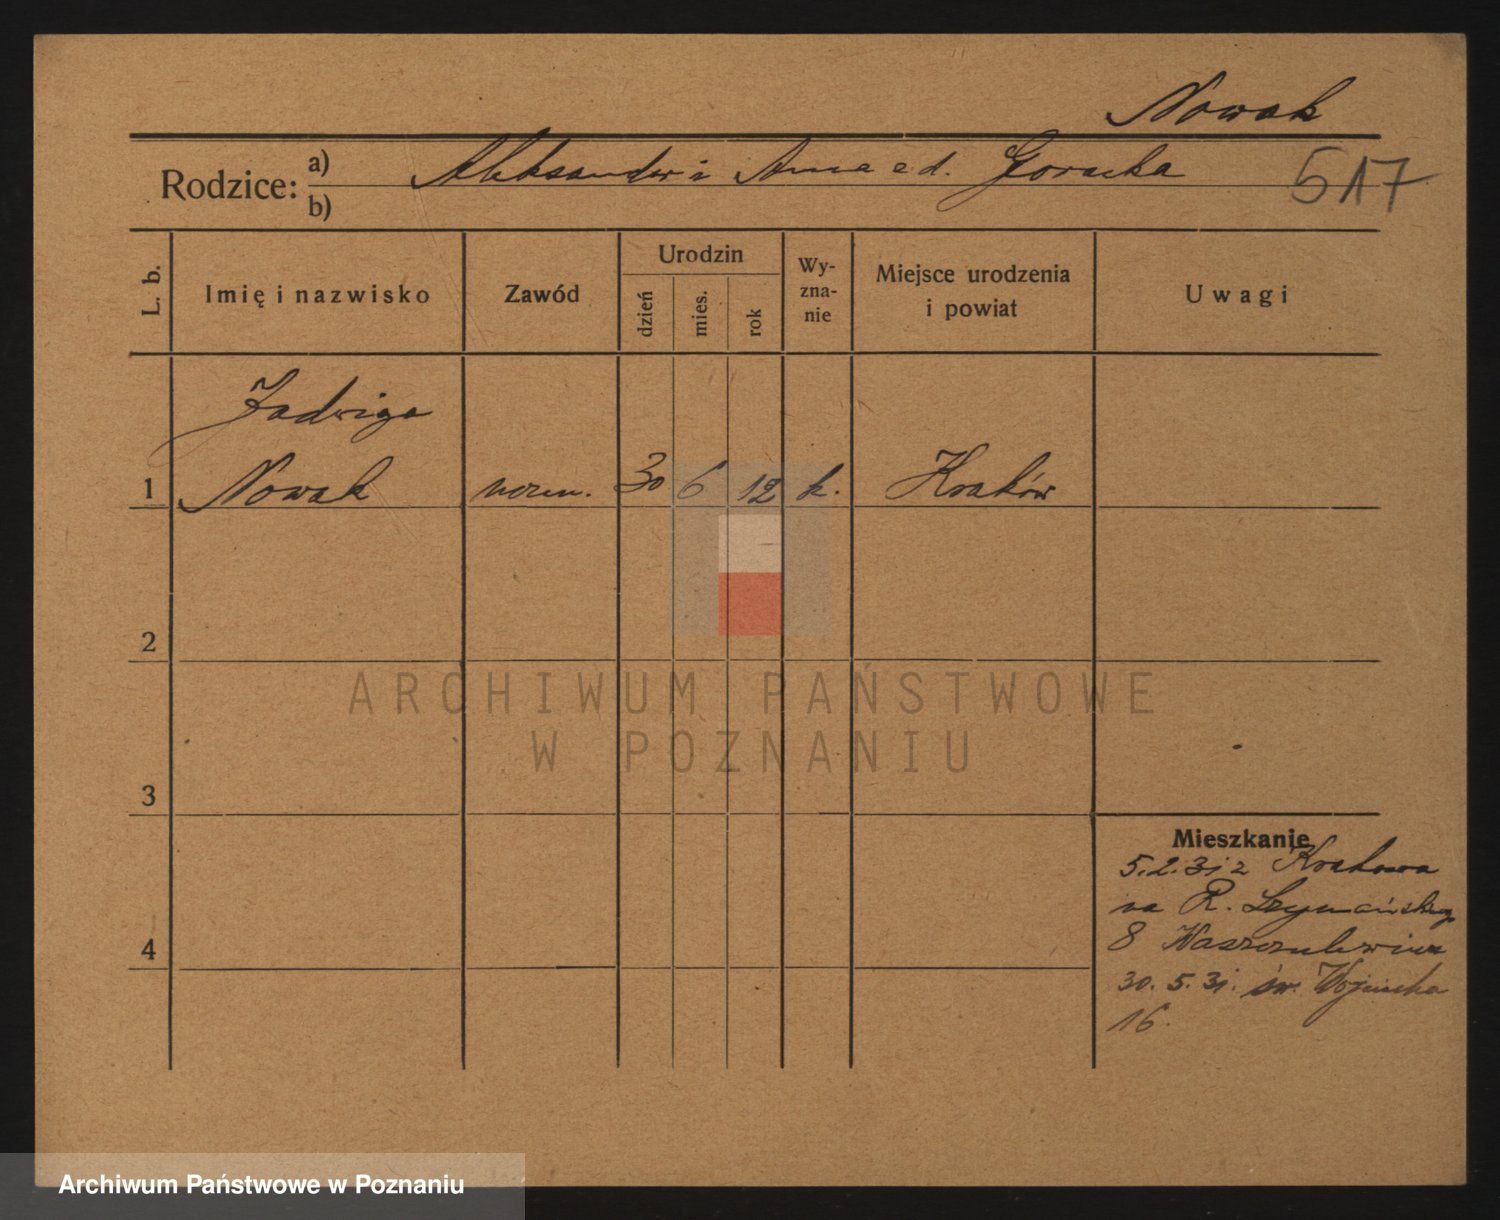 Nowak
Rodzice: a) Aleksander i Anna
b)
517
L. b. Imię i nazwisko Zawód Urodzin dzień mies. rok Wyznanie Miejsce urodzenia i powiat Uwagi
Jadwiga
1 Nowak 30 6 12 k. Kraków
2
3
4
Mieszkanie
5.2.31 z Krakowa
na R. Szymańskiego
8
30.5.31. św. Wojciecha
16.
ARCHIWUM PAŃSTWOWE
W POZNANIU
Archiwum Państwowe w Poznaniu